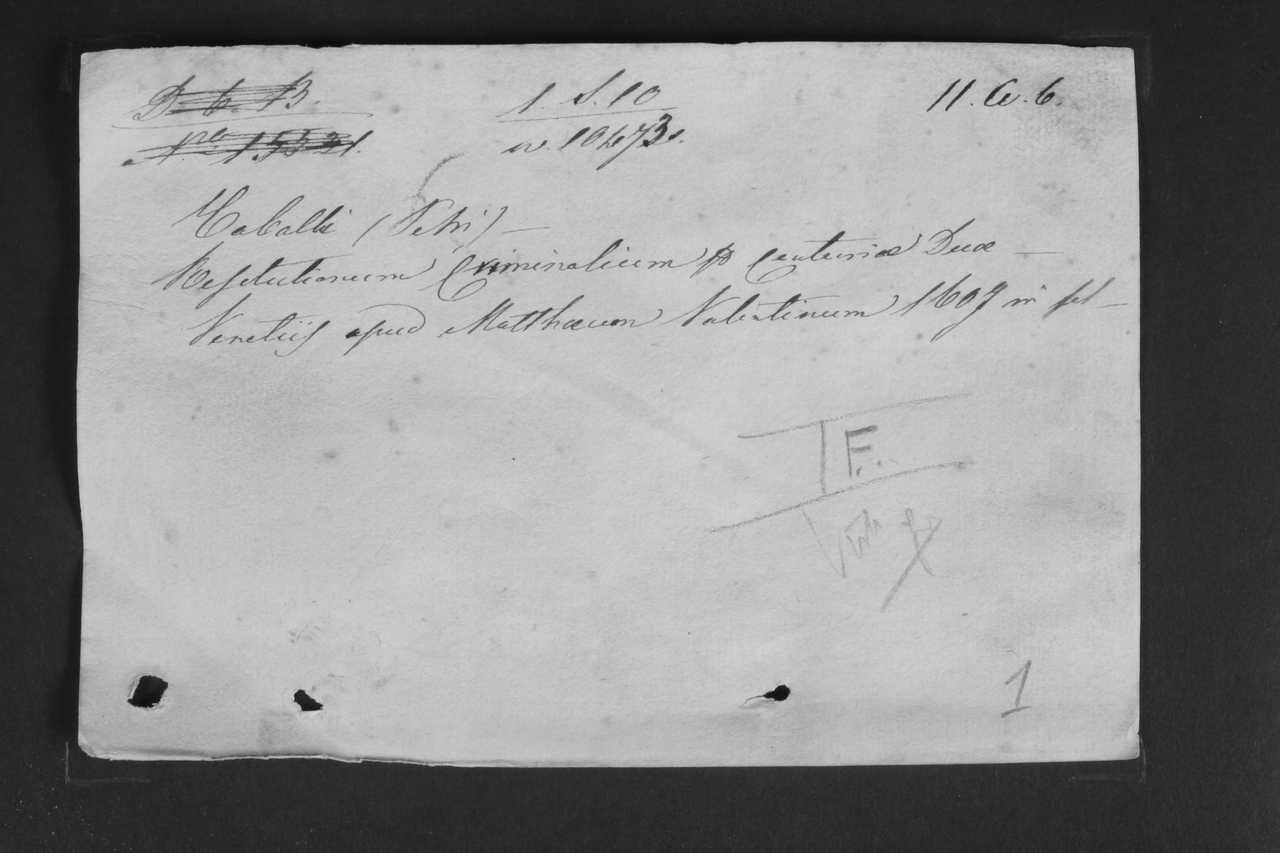 D. 6. B.
N.ro 15321.
1. S. 10
n. 10473.
11. C. 6.
Caballi (Petri) —
Resolutionum Criminalium Centuriae Duae —
Venetiis apud Matthaeum Valentinum 1607 in fol —
F.
1